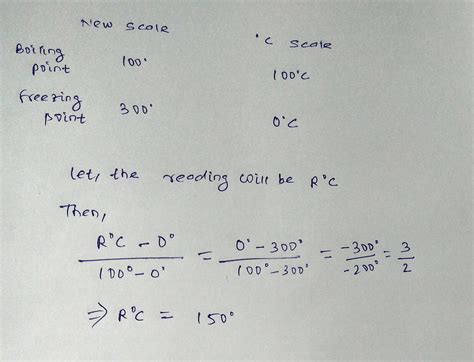 New scale °C scale
Boiling point 100° 100°C
Freezing point 300° 0°C
let, the reading will be R°C
Then,
R°C - 0° / 100° - 0° = 0° - 300° / 100° - 300° = -300° / -200° = 3 / 2
⇒ R°C = 150°